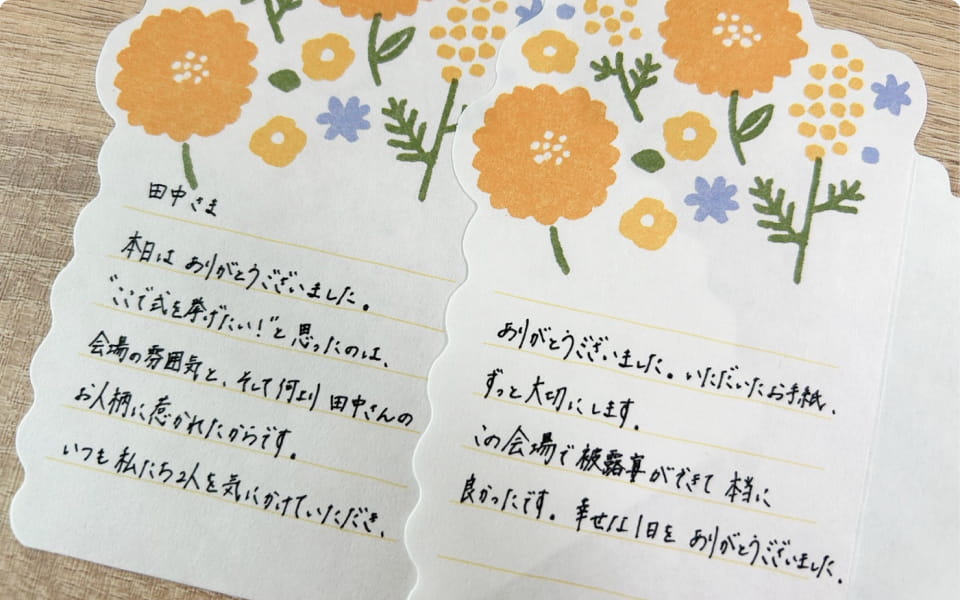 田中さま
本日は ありがとうございました。
“ここで式を挙げたい!”と思ったのは、
会場の雰囲気と、そして何より 田中さんの
お人柄に惹かれたからです。
いつも 私たち2人を気にかけていただき、
ありがとうございました。いただいたお手紙、
ずっと大切にします。
この会場で被露宴ができて 本当に
良かったです。幸せな1日を ありがとうございました。